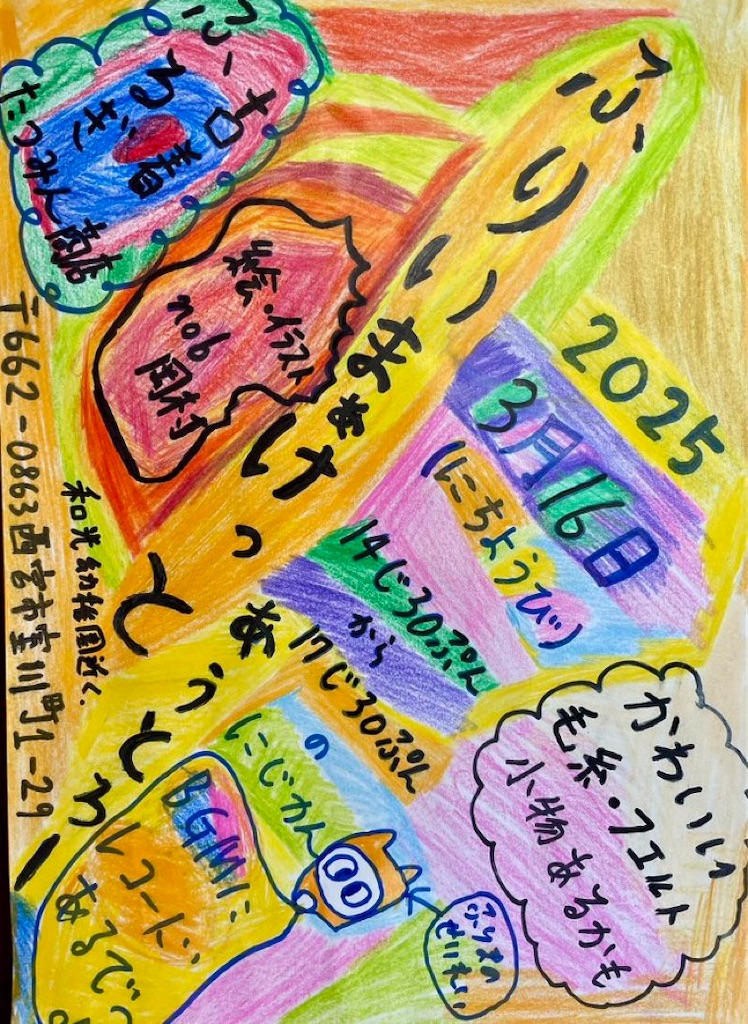 ふりいまぁけっと
ぁっとろー
2025
3月16日
(にちようび)
14じ30ぷん
から
17じ30ぷん
の
にじかん
ふるぎ
古着
たつみ人商店
絵・イラスト
nob
岡村
〒662-0863西宮市室川町1-29
和光幼稚園近く.
かわいい
毛糸・フエルト
小物あるかも
BGMに
レコード
あるでっ
ふりまの
せいれい